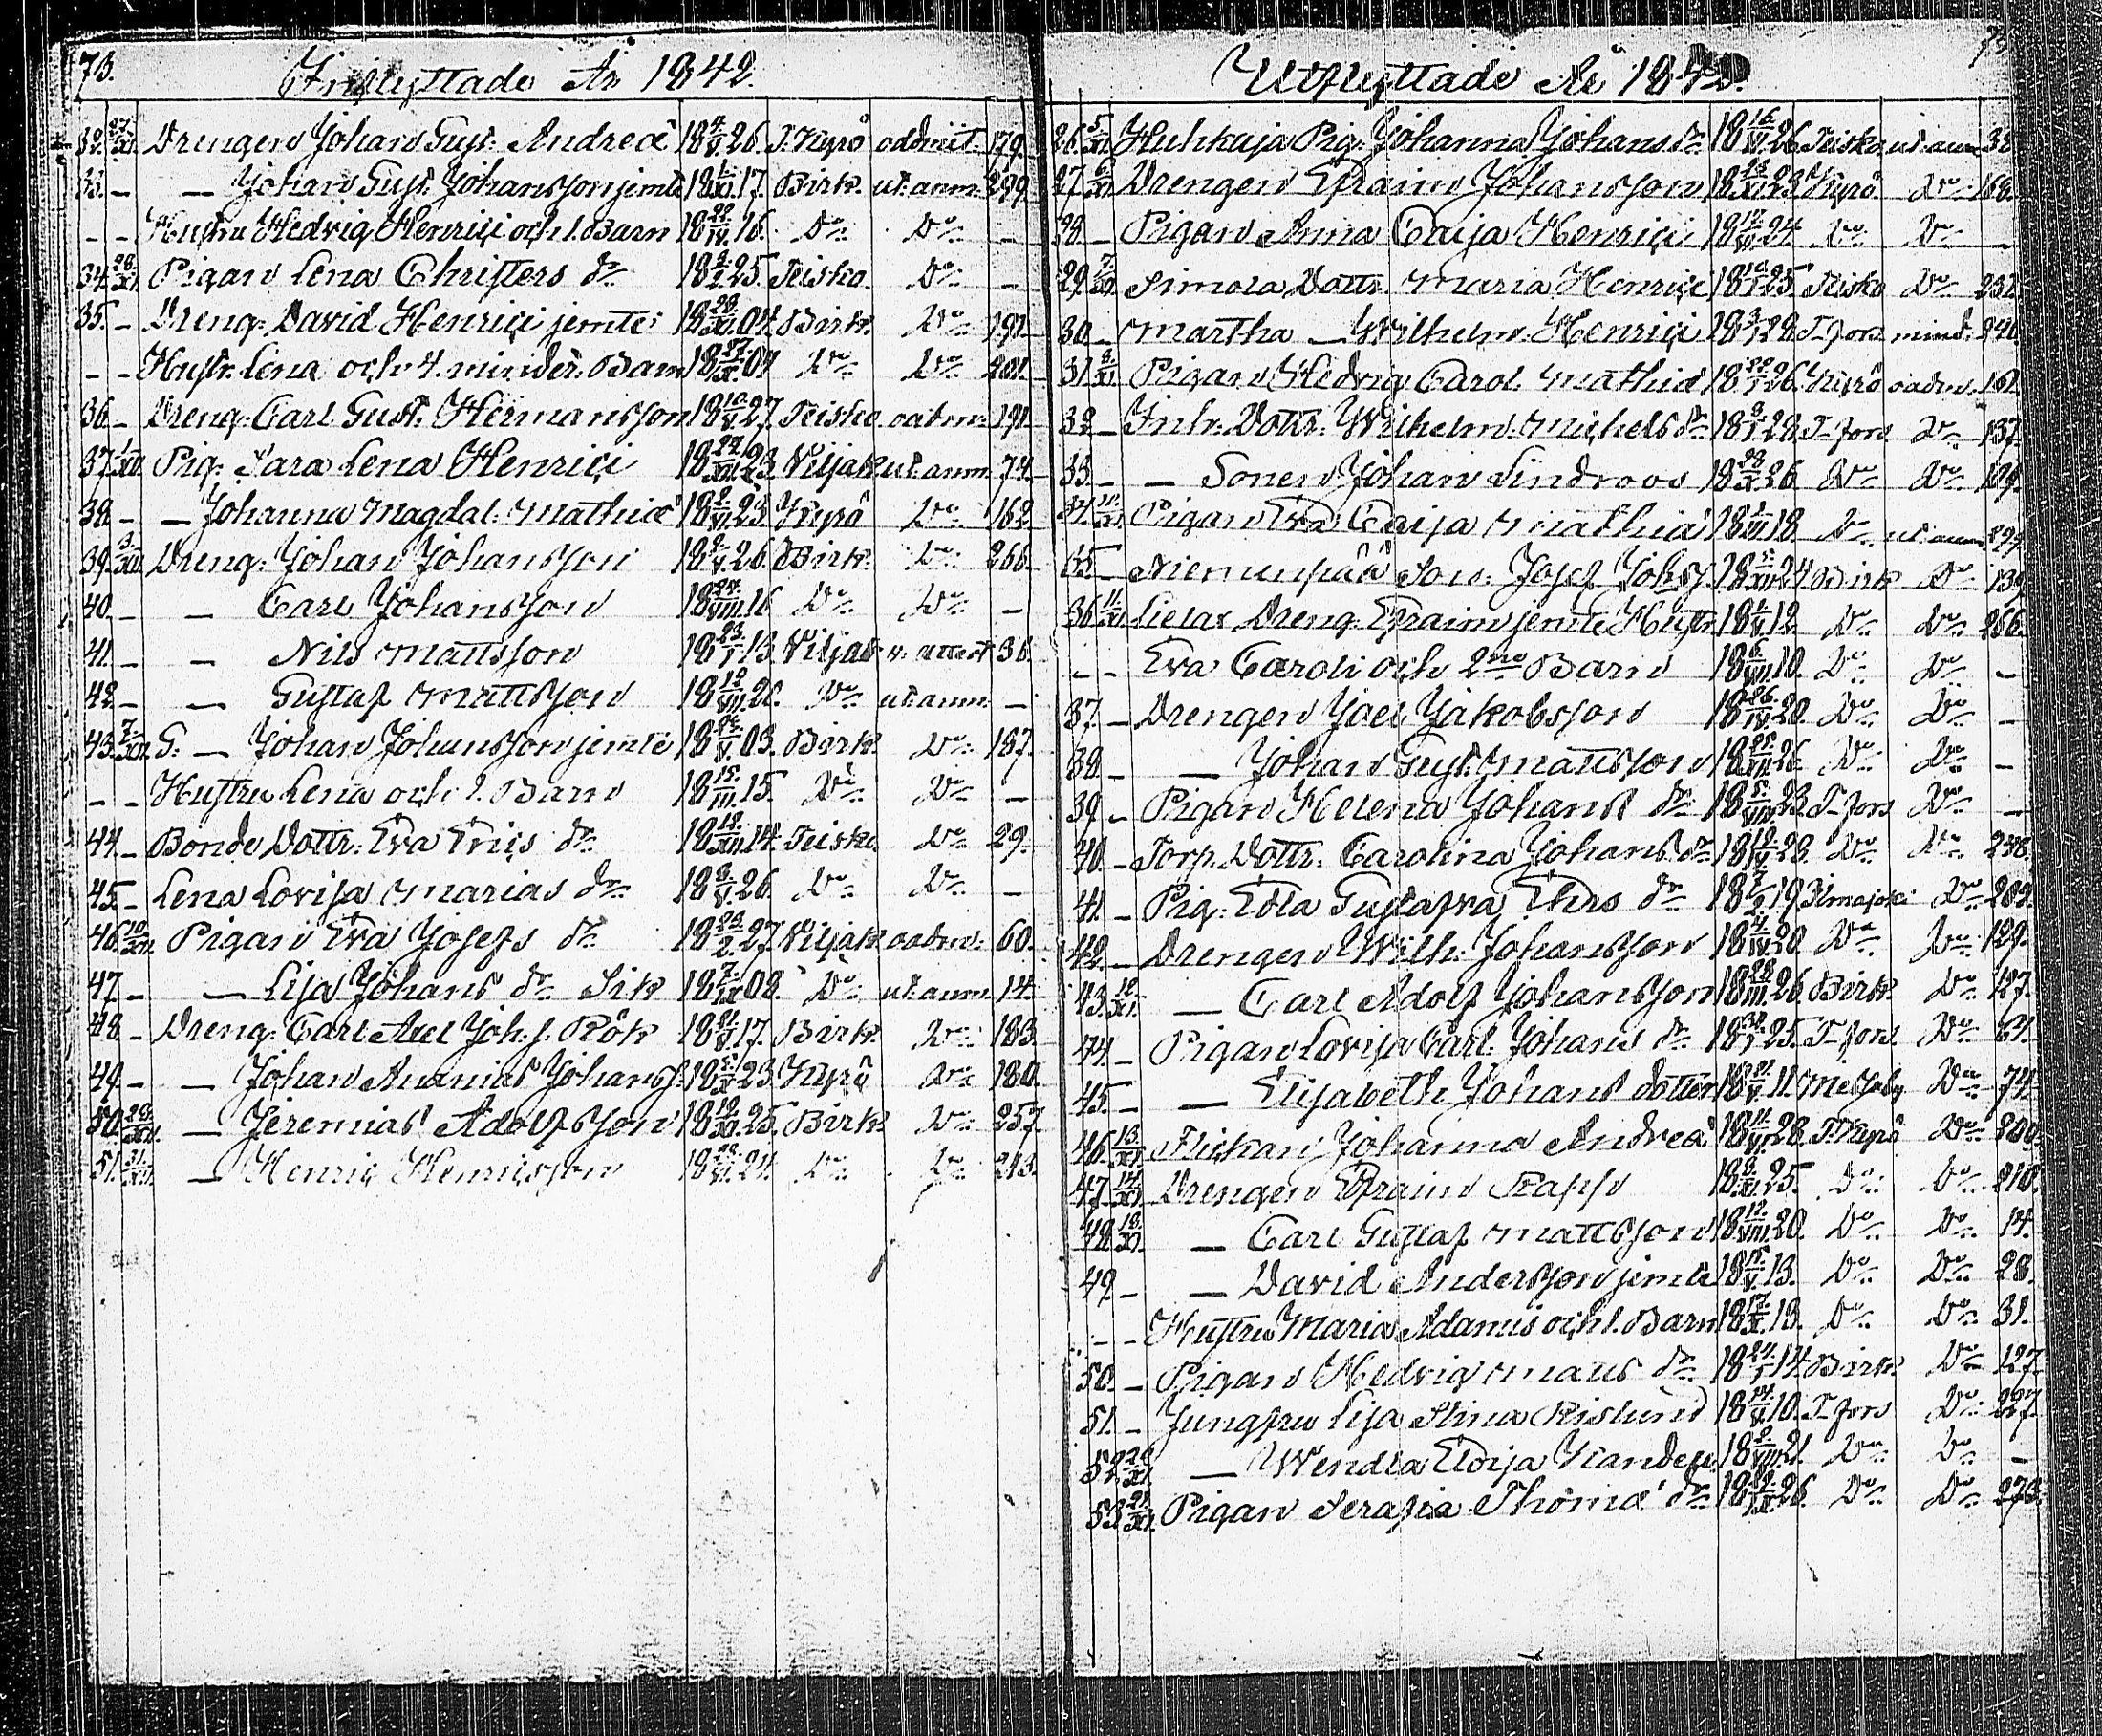 73.
Inflyttade År 1842.
32. 27/XI. Drengen Johan Gust. Andreæ 18 4/V. 26. T. Kyrö oadmit. 179.
33. – — Johan Gust. Johansson jemte 18 1/XI. 17. Birk. ut. anm. 299.
– – Hustru Hedvig Henrici och 1. Barn 18 22/IV. 16. Do Do –
34. 28/XI. Pigan Lena Christers dr 18 2/2. 25. Teisko. Do –
35. – Dreng: David Henrici jemte 18 28/XI. 04. Birk. Do 191.
– – Hustr. Lena och 4. minder. Barn 18 27/IX. 07 Do Do 201.
36. – Dreng: Carl Gust. Hermansson 18 10/V. 27. Teisko. oadm: 191.
37. 1/XII. Pig: Sara Lena Henrici 18 29/XII. 23. Viljak. ut. anm. 74.
38. – — Johanna Magdal. Mathiæ 18 2/VI. 23. Kyrö Do 162
39. 3/XII. Dreng: Johan Johansson 18 9/V. 26. Birk. Do 266.
40. – — Carl Johansson 18 24/VIII. 16 Do Do –
41. – — Nils Mattsson 18 23/I. 13. Viljak u. attest 36.
42. – — Gustaf Mattsson 18 12/VII. 20. Do ut. anm. –
43. 7/XII. G: — Johan Johansson jemte 18 22/V. 03. Birk. Do 187.
– – Hustru Lena och 1. Barn 18 15/III. 15. Do Do –
44. – Bonde Dottr: Eva Erics dr 18 12/XII. 14. Teisko. Do 29.
45. – Lena Lovisa Marias dr 18 9/V. 26. Do Do –
46. 10/XII. Pigan Eva Josefs dr 18 23/2. 27. Viljak. oadm: 60.
47 – — Lisa Johans dr Sik 18 7/IX. 08. Do ut. anm. 14.
48. – Dreng: Carl Axel Joh. s. Rök 18 21/V. 17. Birk. Do 183.
49. – — Johan Ananias Johanss. 18 5/X. 23. Kyrö Do 180.
50. 28/XII. — Jeremias Adolfsson 18 19/XI. 25. Birk. Do 257.
51. 31/XII. — Henric Henricsson 18 28/VI. 24. Do Do 213.
Utflyttade År 1842.
26. 5/XI. Huhkaja Pig: Johanna Johans dr 18 16/VI. 26. Teisko ut. anm. 32.
27. 6/XI. Drengen Efraim Johansson 18 13/XI. 23. Kyrö Do 168.
28. – Pigan Anna Caija Henrici 18 12/VI. 24. Do Do –
29. 7/XI. Simola Dottr. Maria Henrici 18 10/I. 25 Teisko Do 232.
30. – Martha — Wilhelm. Henrici 18 3/I. 28. T-fors mind. 240.
31. 8/XI. Pigan Hedvig Carol. Mathiæ 18 20/I. 26. Kyrö oadm. 161.
32. – Inh. Dottr. Wilhelm. Michels dr 18 8/I. 28. T-fors Do 137.
33. – — Sonen Johan Lindroos 18 28/X. 26. Do Do 109.
34. 11/XI. Pigan Eva Caija Mathiæ 18 2/III. 18 Do ut. anm. 299.
35. – Niemenpää Son: Josef Johss. 18 5/XII. 24. Birk Do 139
36. 11/XI. Lielax Dreng. Efraim jemte Hustr. 18 1/V. 12. Do Do 266.
– – Eva Caroli och 2ne Barn 18 6/VII. 10. Do Do –
37. – Drengen Joel Jakobsson 18 26/IV. 20. Do Do –
38. – — Johan Gust. Mattsson 18 25/XII. 26. Do Do –
39. – Pigan Helena Johans dr 18 5/VIII. 23. T-fors Do –
40. – Torp. Dottr: Carolina Johans dr 18 12/IV. 28. Do Do 238.
41. – Pig: Edla Gustafva Ehrs dr 18 7/2. 19. Ilmajoki Do 202.
42. – Drengen Wilh. Johansson 18 4/IV. 20. Do Do 129.
43. 12/XI. — Carl Adolf Johansson 18 28/III. 26. Birk. Do 127.
44. – Pigan Lovisa Carl. Johans dr 18 30/I. 25. T-fors. Do 61.
45. – — Elisabeth Johans dotter 18 21/V. 11. Messuby Do 74.
46. 13/XI. Flickan Johanna Andreæ 18 11/VI. 28. T. Kyrö Do 200.
47. 14/XI. Drengen Efraim Rapp 18 8/XI. 25. Do Do 210.
48. 18/XI. — Carl Gustaf Mattsson 18 12/VIII. 20. Do Do 14.
49. – — David Andersson jemte 18 15/V. 13. Do Do 28.
– – Hustru Maria Adami och 1. Barn 18 17/X. 13. Do Do 31.
50. – Pigan Hedvig Matts dr 18 24/I. 14. Birk. Do 127.
51. – Jungfru Lisa Stina Kislund 18 14/V. 10. T-fors Do 227.
52. 20/XI. — Wendla Edija 18 2/VIII. 21. Do Do –
53. 21/XI. Pigan Serafia Thomæ dr 18 19/IX. 26. Do Do 273.